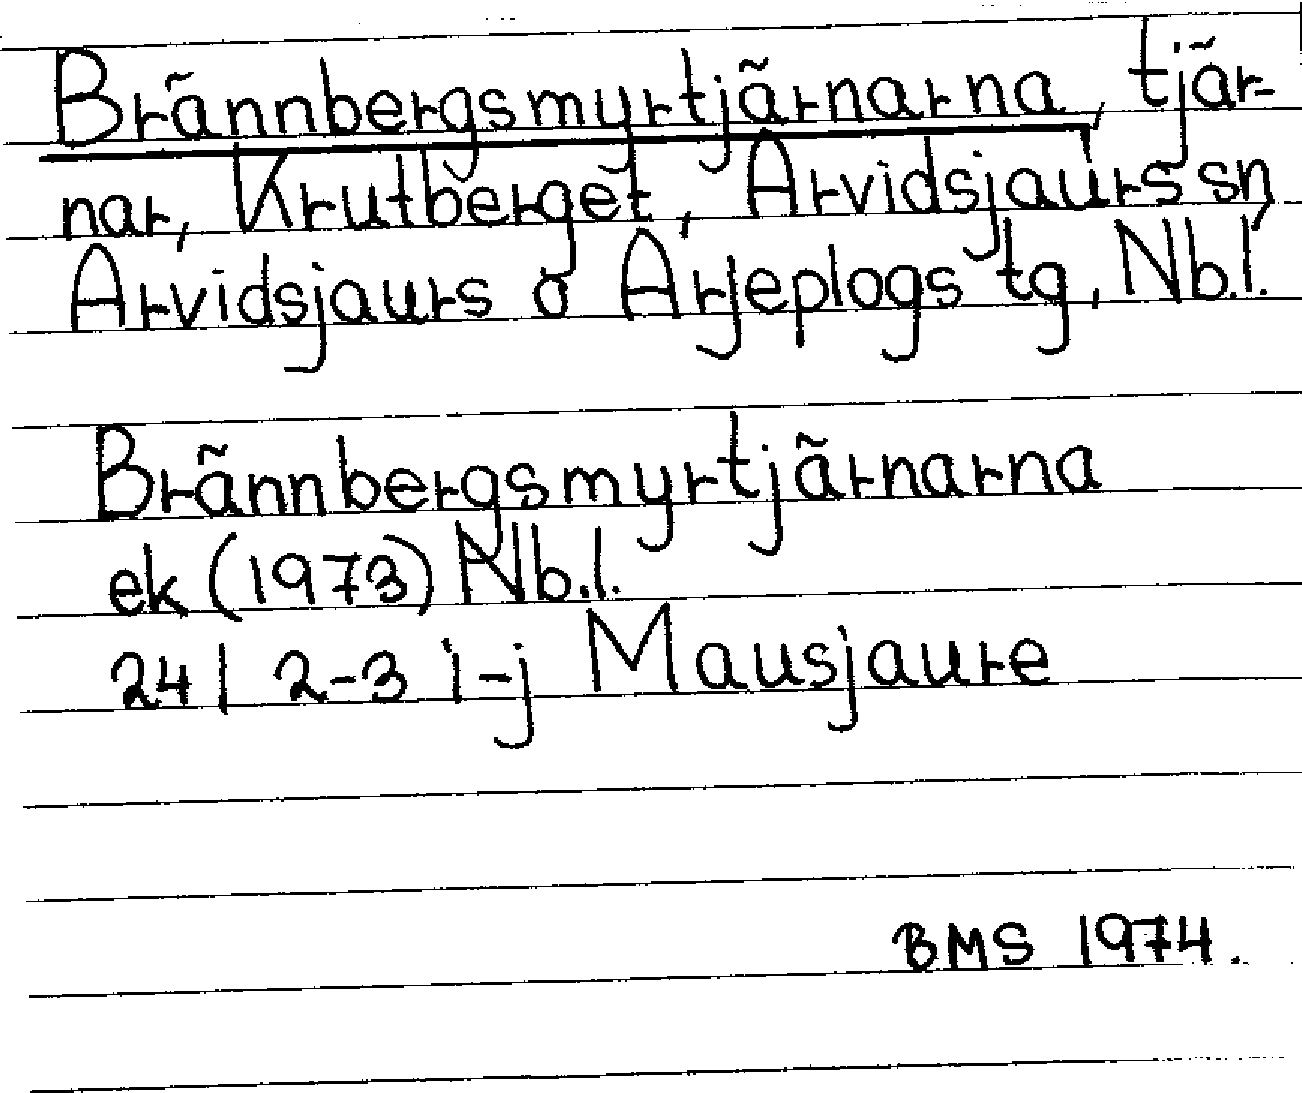 Brännbergsmyrtjärnarna, tjär-
nar, Krutberget, Arvidsjaurs sn,
Arvidsjaurs o Arjeplogs tg, Nb.l.
Brännbergsmyrtjärnarna
ek (1973) Nb.l.
24 I 2-3 i-j Mausjaure
BMS 1974.